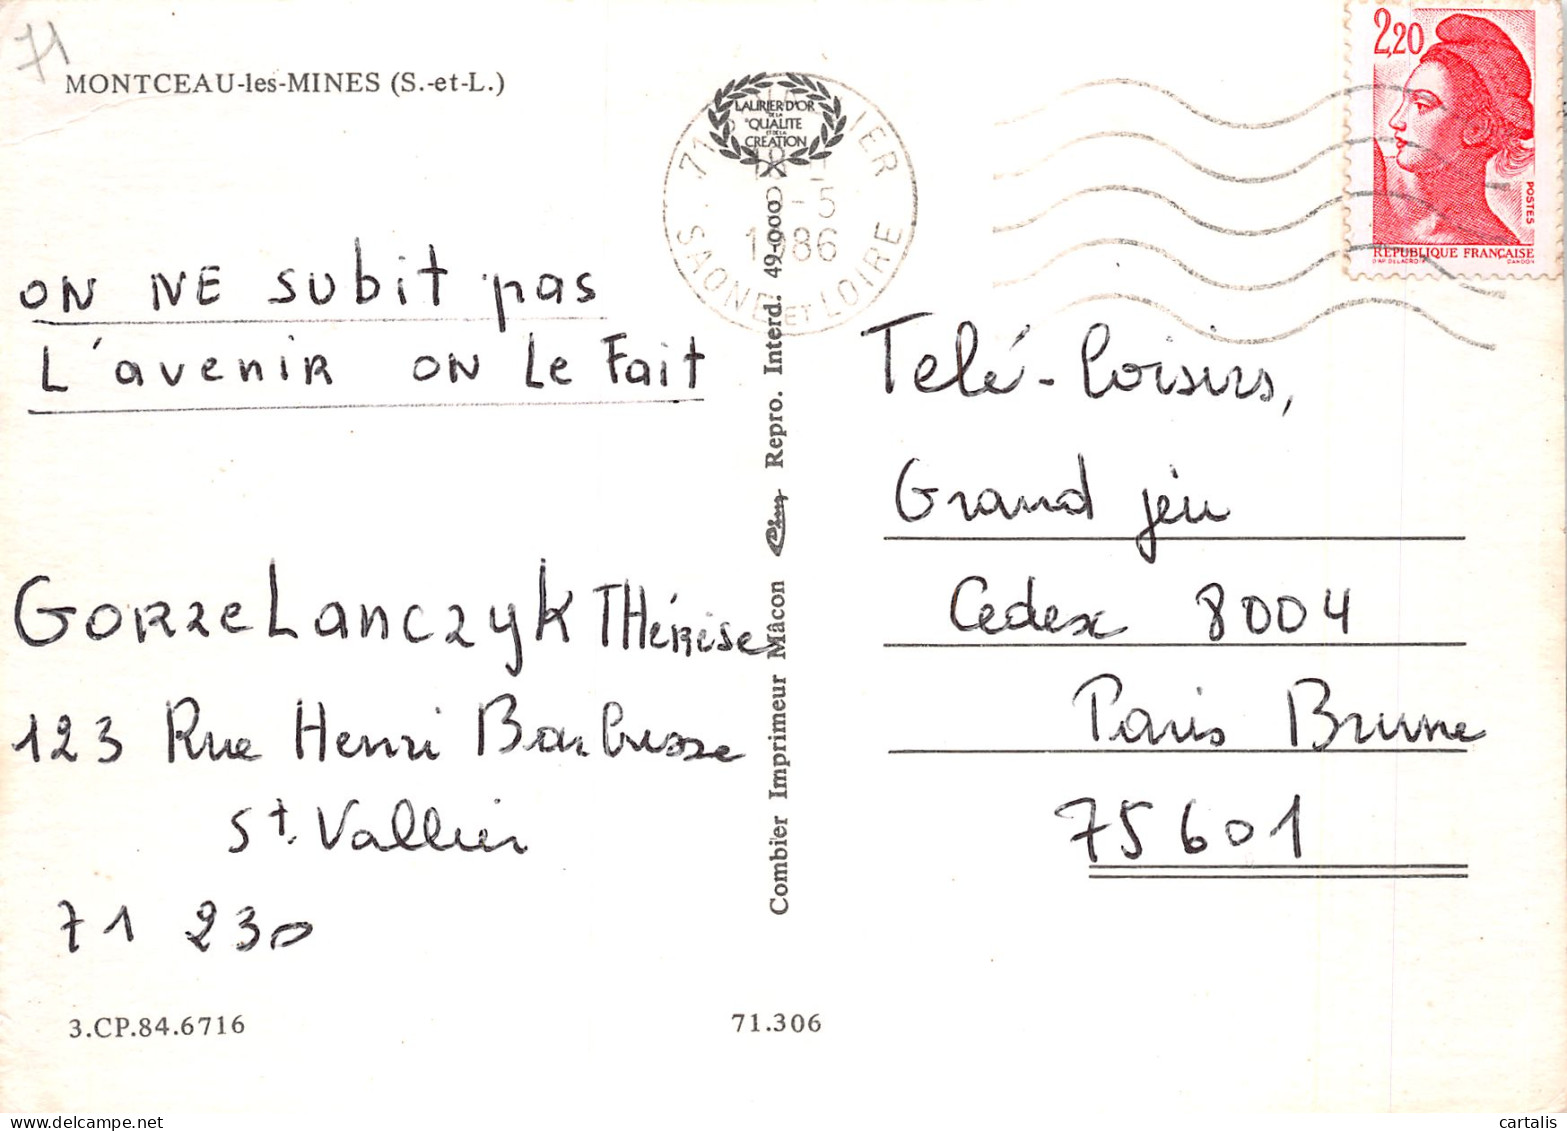 71
MONTCEAU-les-MINES (S.-et-L.)
LAURIER D'OR
DE LA
QUALITE
ET DE LA
CREATION
5
1986
SAONE ET LOIRE
2,20
POSTES
RÉPUBLIQUE FRANÇAISE
D'AP. DELACROIX GANDON
ON NE subit pas
L'avenir ON Le Fait
GORZeLanczyk THérèse
123 Rue Henri Barbusse
St. Vallier
71 230
Combier Imprimeur Mâcon Cim Repro. Interd. 49-000
Telé-Loisirs,
Grand jeu
Cedex 8004
Paris Brune
75601
3.CP.84.6716
71.306
cartalis